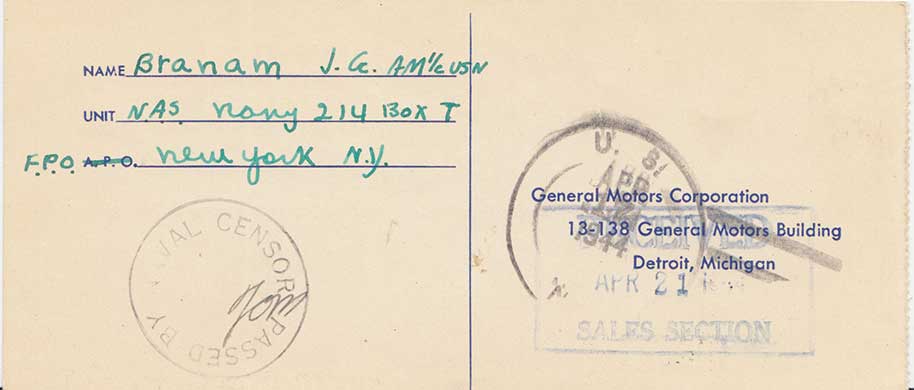 NAME Branam J. C. AM1/c USN
UNIT N.A.S. Navy 214 Box T
F.P.O. A.P.O. New York N.Y.
PASSED BY NAVAL CENSOR
U. S.
APR
1944
General Motors Corporation
13-138 General Motors Building
Detroit, Michigan
RECEIVED
APR 21
SALES SECTION